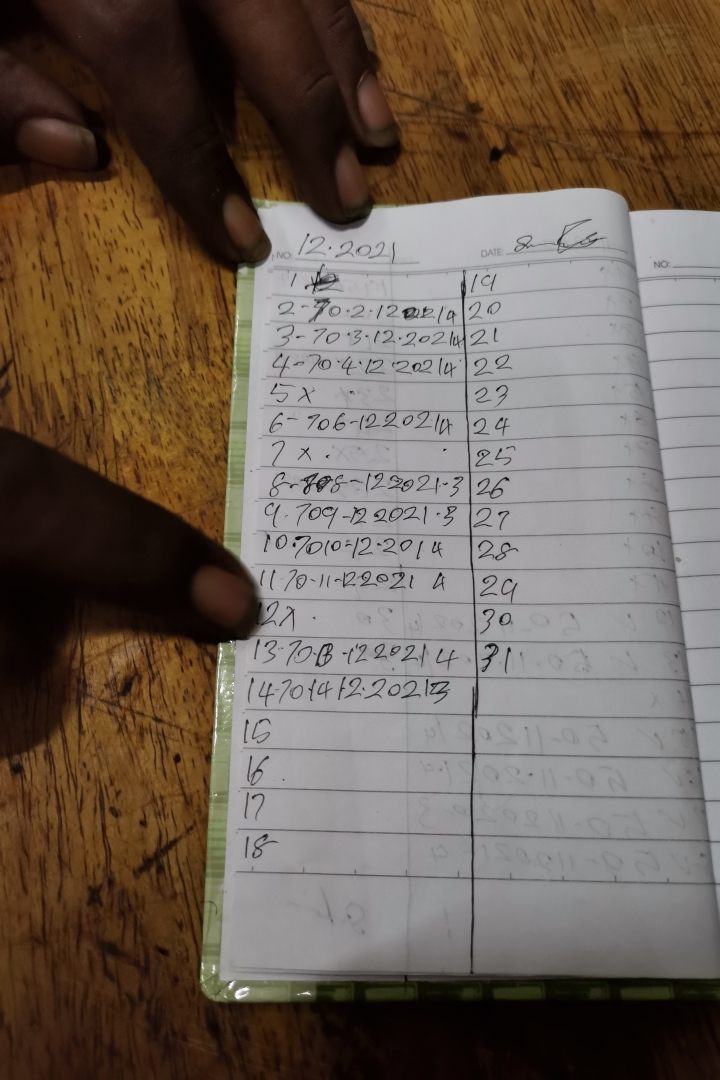 NO. 12.2021
DATE:
NO:
1
2-70.2.12 2021 4
3-70.3.12.2021 4
4-70.4.12.2021 4
5 x
6-706-122021 4
7 x.
8-708-122021.3
9.709-122021.3
10.7010-12.201 4
11-70-11-122021 4
12x.
13-70 13-122021 4
14-70 14 12.2021 3
15
16.
17
18
19
20
21
22
23
24
25
26
27
28
29
30
31